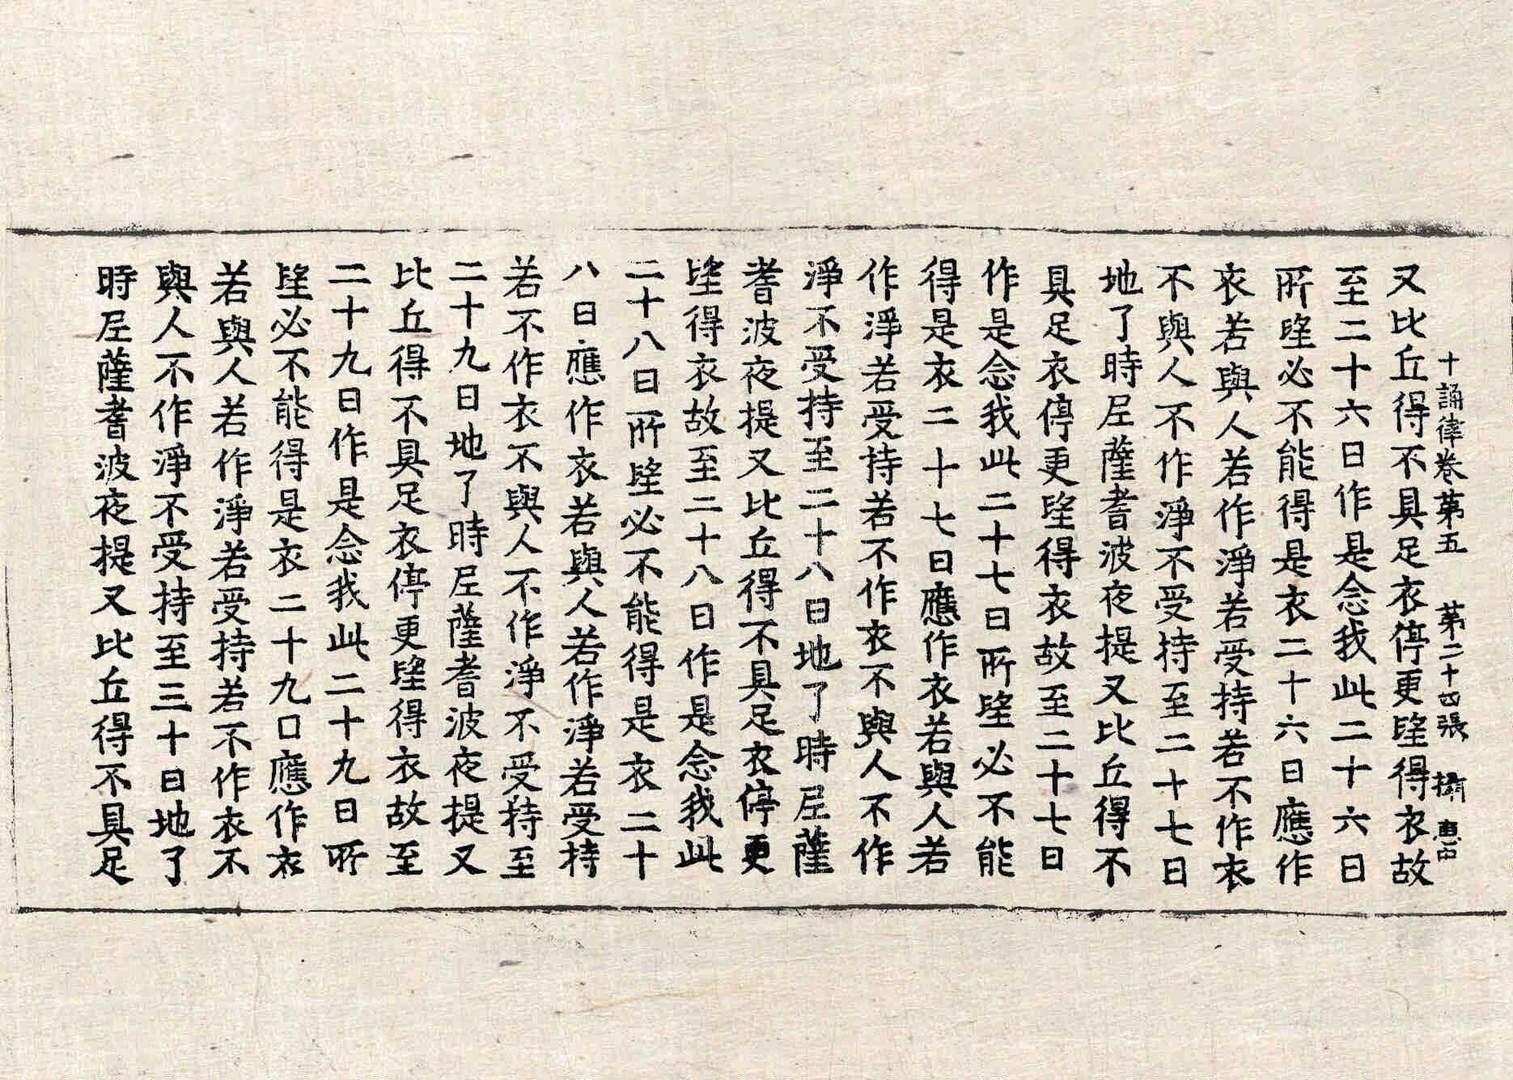 十誦律卷第五 第二十四張
又比丘得不具足衣停更望得衣故
至二十六日作是念我此二十六日
所望必不能得是衣二十六日應作
衣若與人若作淨若受持若不作衣
不與人不作淨不受持至二十七日
地了時尼薩耆波夜提又比丘得不
具足衣停更望得衣故至二十七日
作是念我此二十七日所望必不能
得是衣二十七日應作衣若與人若
作淨若受持若不作衣不與人不作
淨不受持至二十八日地了時尼薩
耆波夜提又比丘得不具足衣停更
望得衣故至二十八日作是念我此
二十八日所望必不能得是衣二十
八日應作衣若與人若作淨若受持
若不作衣不與人不作淨不受持至
二十九日地了時尼薩耆波夜提又
比丘得不具足衣停更望得衣故至
二十九日作是念我此二十九日所
望必不能得是衣二十九口應作衣
若與人若作淨若受持若不作衣不
與人不作淨不受持至三十日地了
時尼薩耆波夜提又比丘得不具足